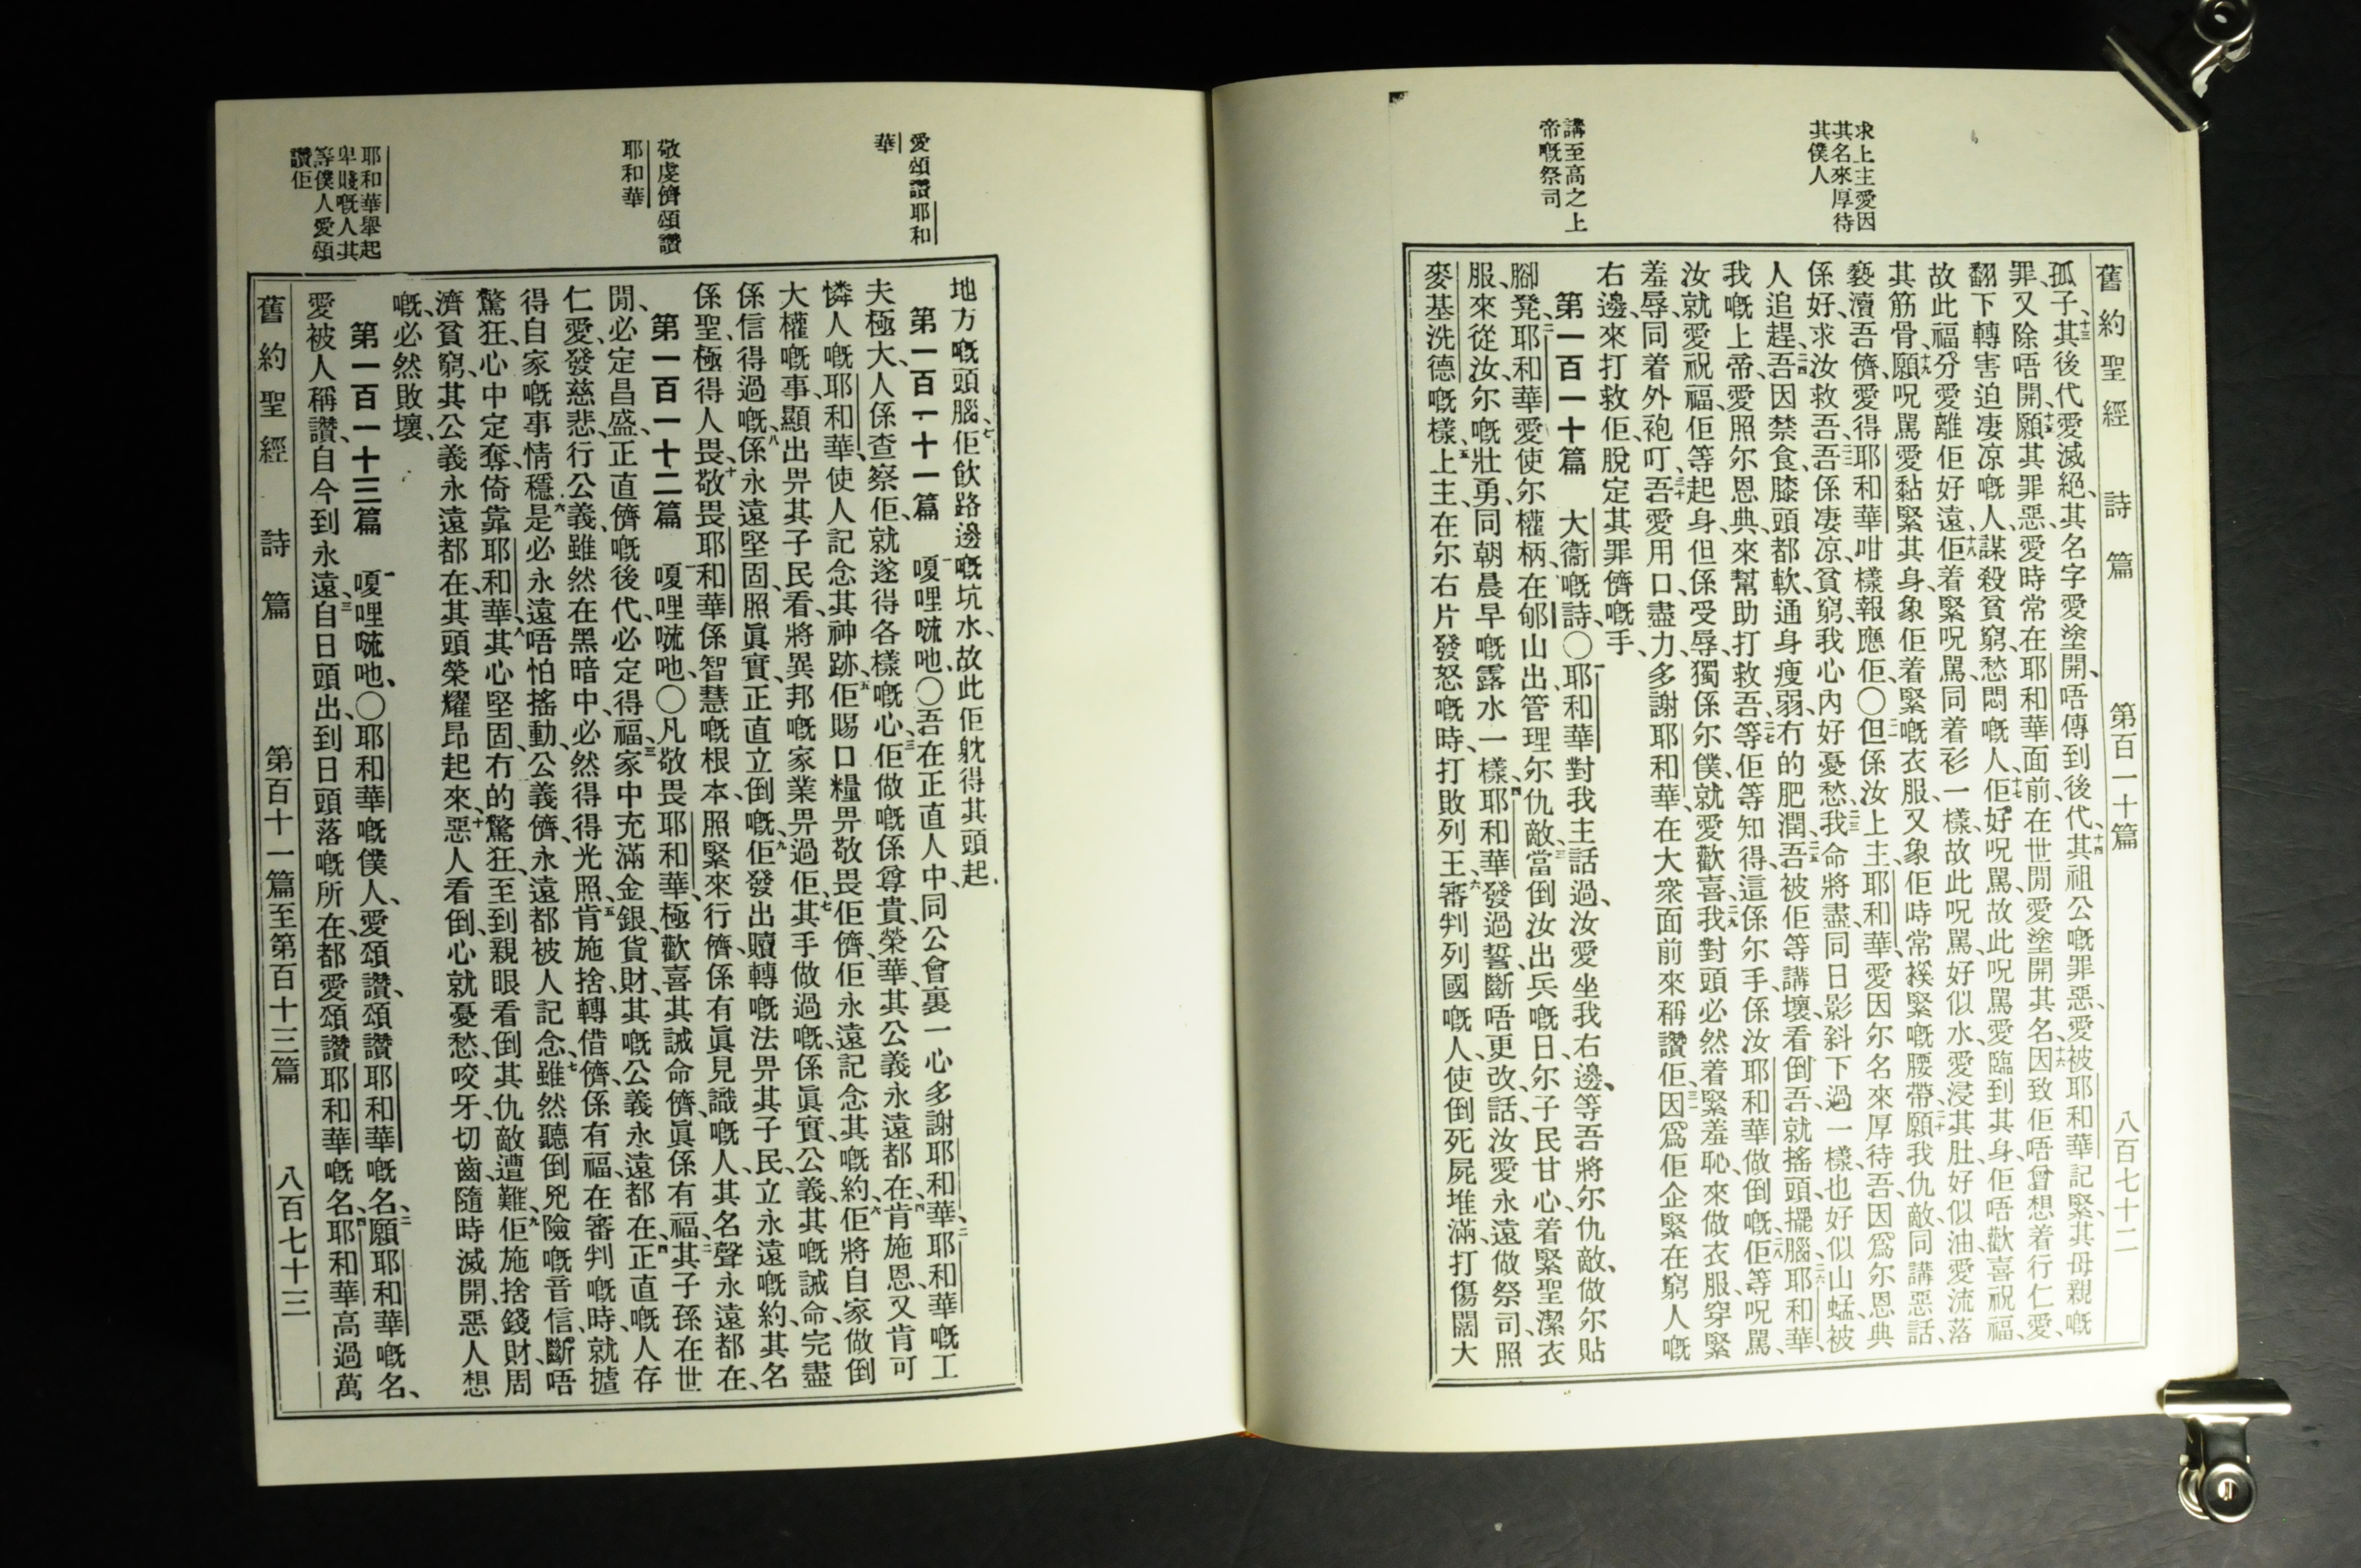 求上主愛因
其名來厚待
其僕人
講至高之上
帝嘅祭司
舊約聖經 詩篇 第百一十篇 八百七十二
孤子、十三其後代愛滅絕、其名字愛塗開、唔傳到後代、十四其祖公嘅罪惡、愛被耶和華記緊、其母親嘅
罪又除唔開、十五願其罪惡、愛時常在耶和華面前、在世間愛塗開其名、十六因致佢唔曾想着行仁愛、
翻下轉害迫凄凉嘅人、謀殺貧窮、愁悶嘅人、十七佢好呪罵、故此呪罵愛臨到其身、佢唔歡喜祝福、
故此福分愛離佢好遠、十八佢着緊呪罵、同着衫一樣、故此呪罵好似水愛浸其肚、好似油愛流落
其筋骨、十九願呪罵愛黏緊其身、象佢着緊嘅衣服、又象佢時常褑緊嘅腰帶、二十願我仇敵、同講惡話、
褻瀆吾儕、愛得耶和華咁樣報應佢、〇二一但係汝上主耶和華、愛因尔名來厚待吾、因爲尔恩典
係好、求汝救吾、二二吾係凄凉、貧窮、我心內好憂愁、二三我命將盡、同日影斜下過一樣、也好似山蜢被
人追趕、二四吾因禁食、膝頭都軟、通身瘦弱、冇的肥潤、二五吾被佢等講壞、看倒吾、就搖頭擺腦、二六耶和華、
我嘅上帝、愛照尔恩典、來幫助打救吾、二七等佢等知得、這係尔手、係汝耶和華做倒嘅、二八佢等呪罵、
汝就愛祝福、佢等起身、但係受辱、獨係尔僕、就愛歡喜、二九我對頭必然着緊羞恥、來做衣服、穿緊
羞辱、同着外袍叮、三十吾愛用口、盡力多謝耶和華、在大衆面前來稱讚佢、三一因爲佢企緊在窮人嘅
右邊、來打救佢、脫定其罪儕嘅手、
第一百一十篇 大衞嘅詩、〇一耶和華對我主話過、汝愛坐我右邊、等吾將尔仇敵、做尔貼
腳凳、二耶和華愛使尔權柄、在郇山出、管理尔仇敵、三當倒汝出兵嘅日、尔子民甘心着緊聖潔衣
服、來從汝、尔嘅壯勇、同朝晨早嘅露水一樣、四耶和華發過誓、斷唔更改、話、汝愛永遠做祭司、照
麥基洗德嘅樣、五上主、在尔右片發怒嘅時、打敗列王、六審判列國嘅人、使倒死屍堆滿、打傷闊大
愛頌讚耶和
華
敬虔儕頌讚
耶和華
耶和華舉起
卑賤嘅人其
等僕人愛頌
讚佢
地方嘅頭腦、七佢飲路邊嘅坑水、故此佢躭得其頭起、
第一百一十一篇 一嗄哩嚦吔、〇吾在正直人中、同公會裏一心多謝耶和華、二耶和華嘅工
夫極大、人係查察佢、就遂得各樣嘅心、三佢做嘅係尊貴、榮華、其公義永遠都在、四肯施恩、又肯可
憐人嘅耶和華、使人記念其神跡、五佢賜口糧畀敬畏佢儕、佢永遠記念其嘅約、六佢將自家做倒
大權嘅事、顯出畀其子民看、將異邦嘅家業畀過佢、七其手做過嘅、係眞實、公義、其嘅誡命、完盡
係信得過嘅、八係永遠堅固、照眞實、正直立倒嘅、九佢發出贖轉嘅法畀其子民、立永遠嘅約、其名
係聖、極得人畏、十敬畏耶和華係智慧嘅根本、照緊來行儕、係有眞見識嘅人、其名聲永遠都在、
第一百一十二篇 一嗄哩嚦吔、〇凡敬畏耶和華、極歡喜其誡命儕、眞係有福、二其子孫在世
間、必定昌盛、正直儕嘅後代、必定得福、三家中充滿金銀、貨財、其嘅公義永遠都在、四正直嘅人存
仁愛、發慈悲、行公義、雖然在黑暗中、必然得得光照、五肯施捨轉借儕、係有福、在審判嘅時、就據
得自家嘅事情穩、六是必永遠唔怕搖動、公義儕、永遠都被人記念、七雖然聽倒兇險嘅音信、斷唔
驚狂、心中定奪、倚靠耶和華、八其心堅固、冇的驚狂、至到親眼看倒其仇敵遭難、九佢施捨錢財、周
濟貧窮、其公義永遠都在、其頭榮耀昂起來、十惡人看倒、心就憂愁、咬牙切齒、隨時滅開、惡人想
嘅、必然敗壞、
第一百一十三篇 一嗄哩嚦吔、〇耶和華嘅僕人、愛頌讚、頌讚耶和華嘅名、二願耶和華嘅名、
愛被人稱讚、自今到永遠、三自日頭出、到日頭落嘅所在、都愛頌讚耶和華嘅名、四耶和華高過萬
舊約聖經 詩篇 第百十一篇至第百十三篇 八百七十三